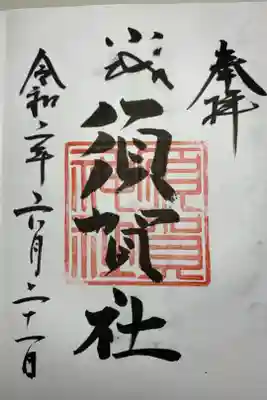 奉拝
須賀社
令和二年六月二十一日